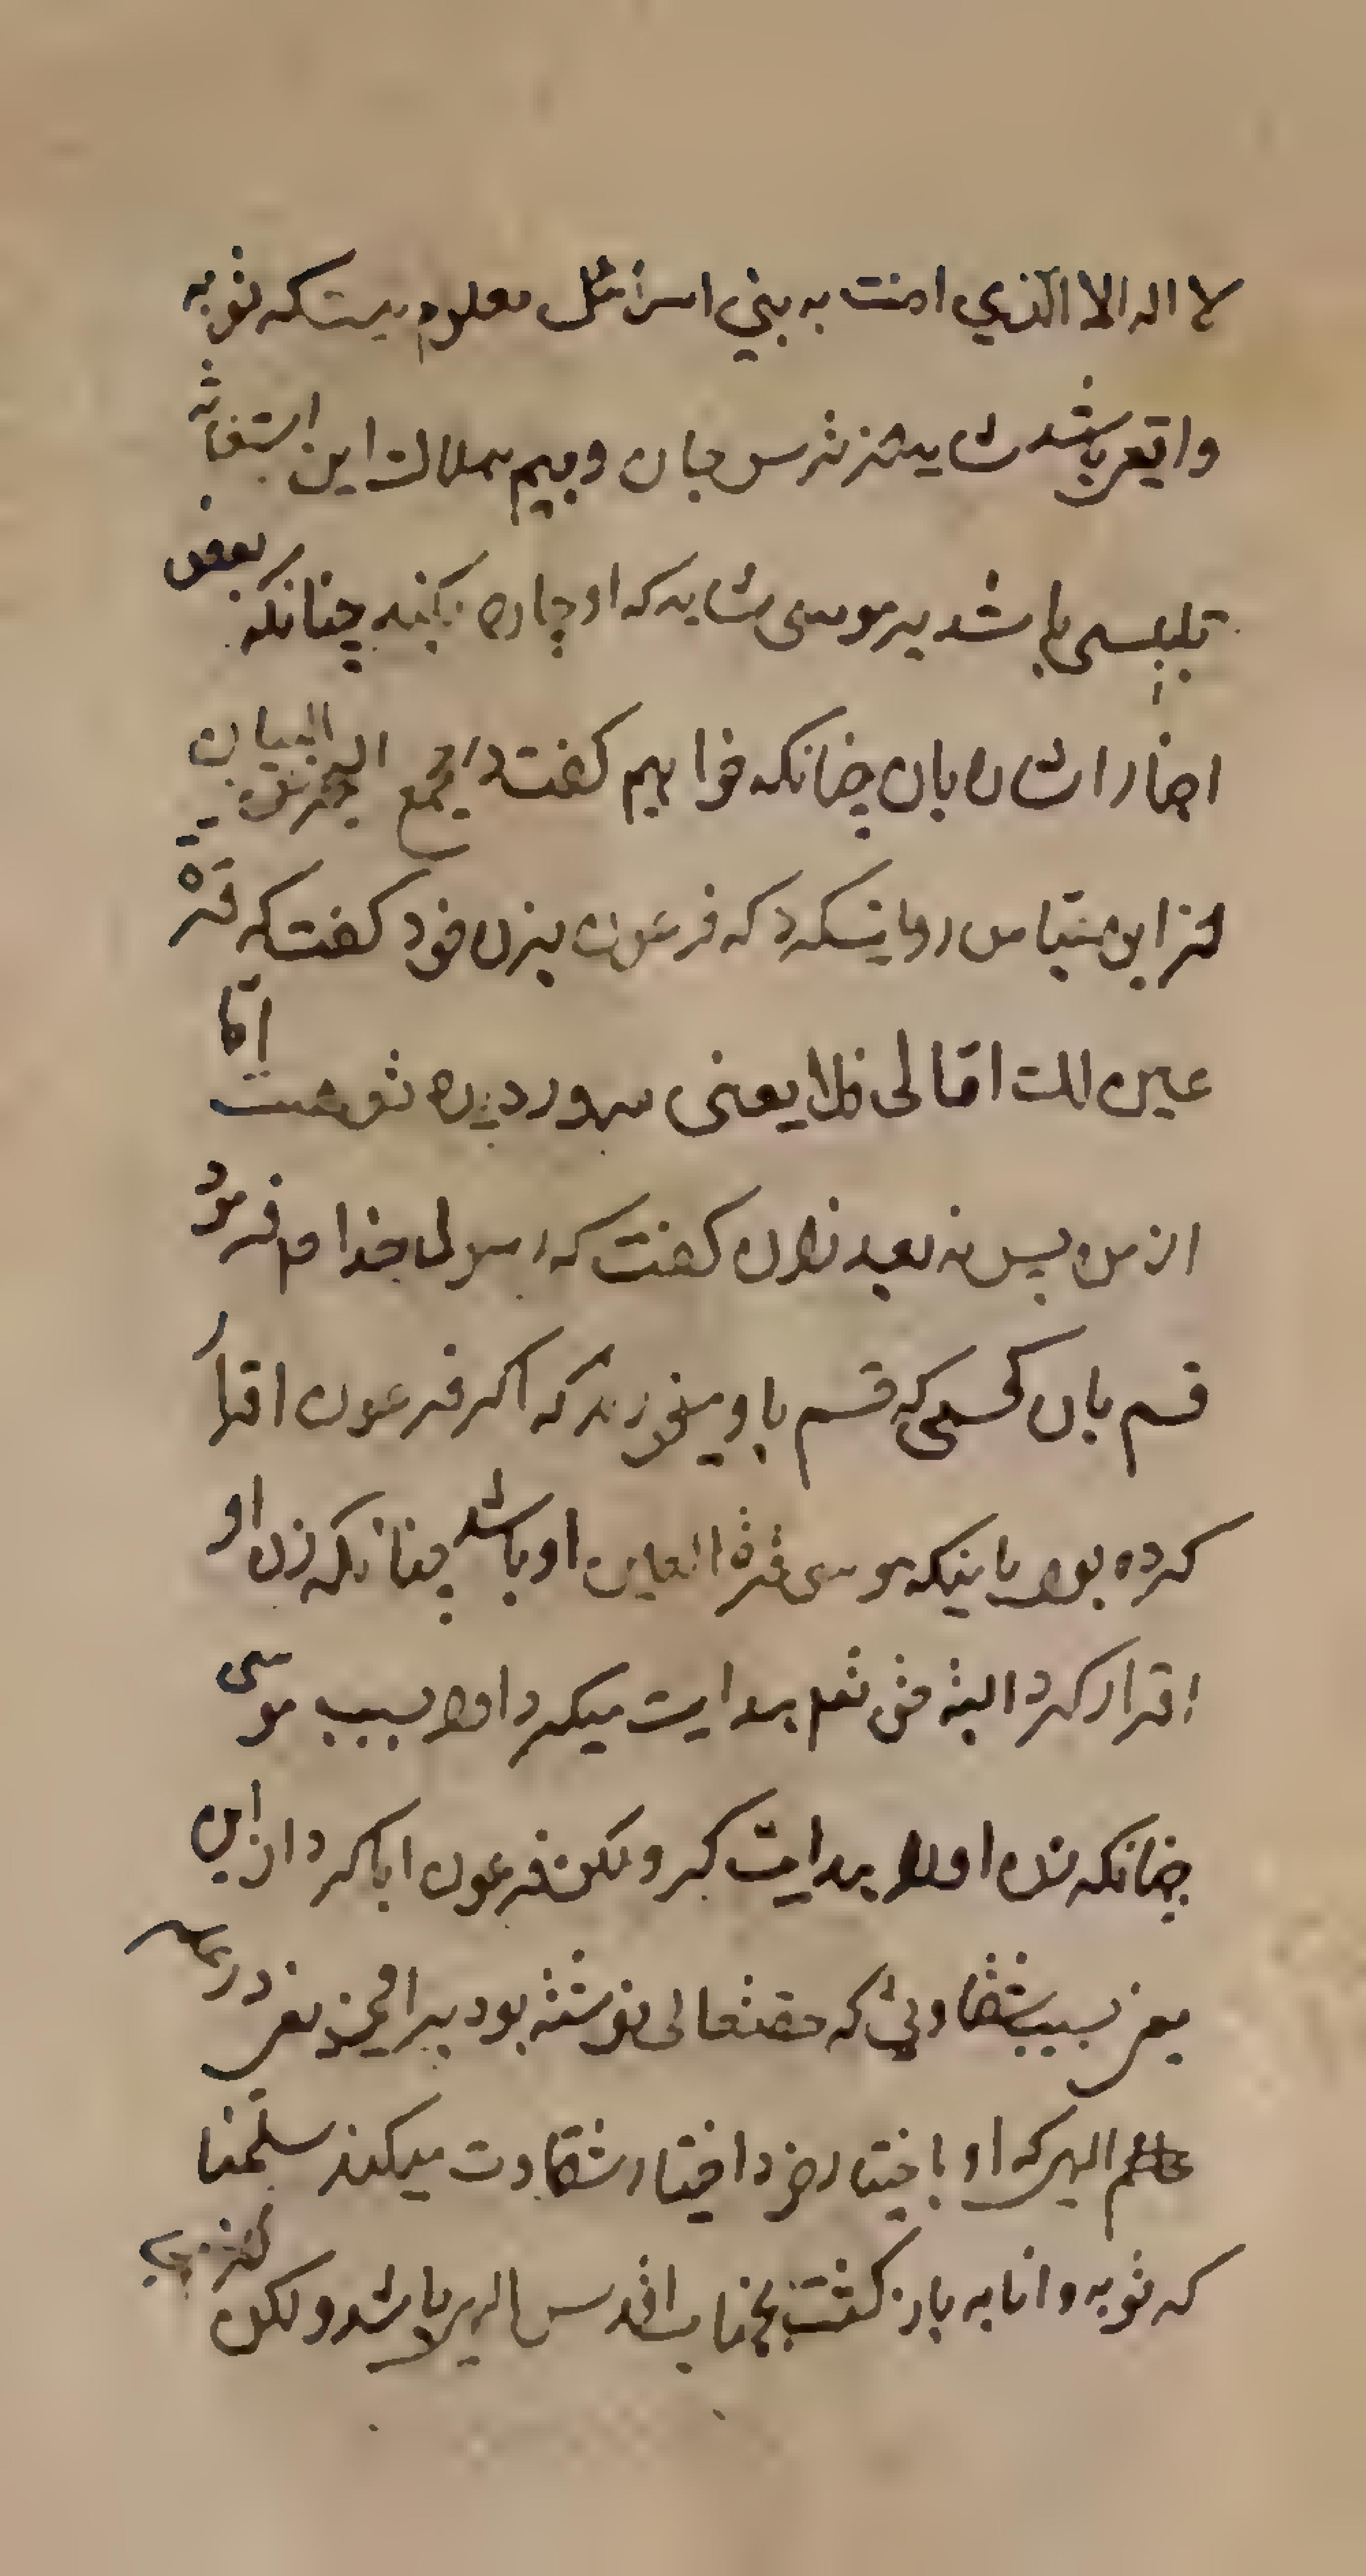 لا اله الا الذي امنت به بني اسرائيل معلوم نيست که توبه
واقعی باشد شاید از ترس جان و بیم هلاک این استغاثه
تلبیسی باشد بر موسی شاید که او چاره بکند چنانکه بعضی
اخبار اشاره بان چنانکه خواهیم گفت در مجمع البیان
از ابن عباس روایت کرد که فرعون بزن خود گفت که قرة
عین لك اما لی فلا یعنی سرور دیده تو هست اما
از من پس نه بعد از ان گفت که رسول خدا ص فرمود
قسم بان کسی که قسم باو میخورند که اکر فرعون اقرار
کرده بود باینکه موسی قرة العین او باشد چنانکه زن او
اقرار کرد البته حق تعم هدایت میکرد اورا بسبب موسی
چنانکه زن اورا هدایت کرد ولکن فرعون ابا کرد از این
یعنی بسبب شقاوتی که حقتعالی نوشته بود برا یعنی در
علم الهی که او باختیار خود اختیار شقاوت میکند سلمنا
که توبه و انابه باز کشت بجناب اقدس الهی باشد ولکن